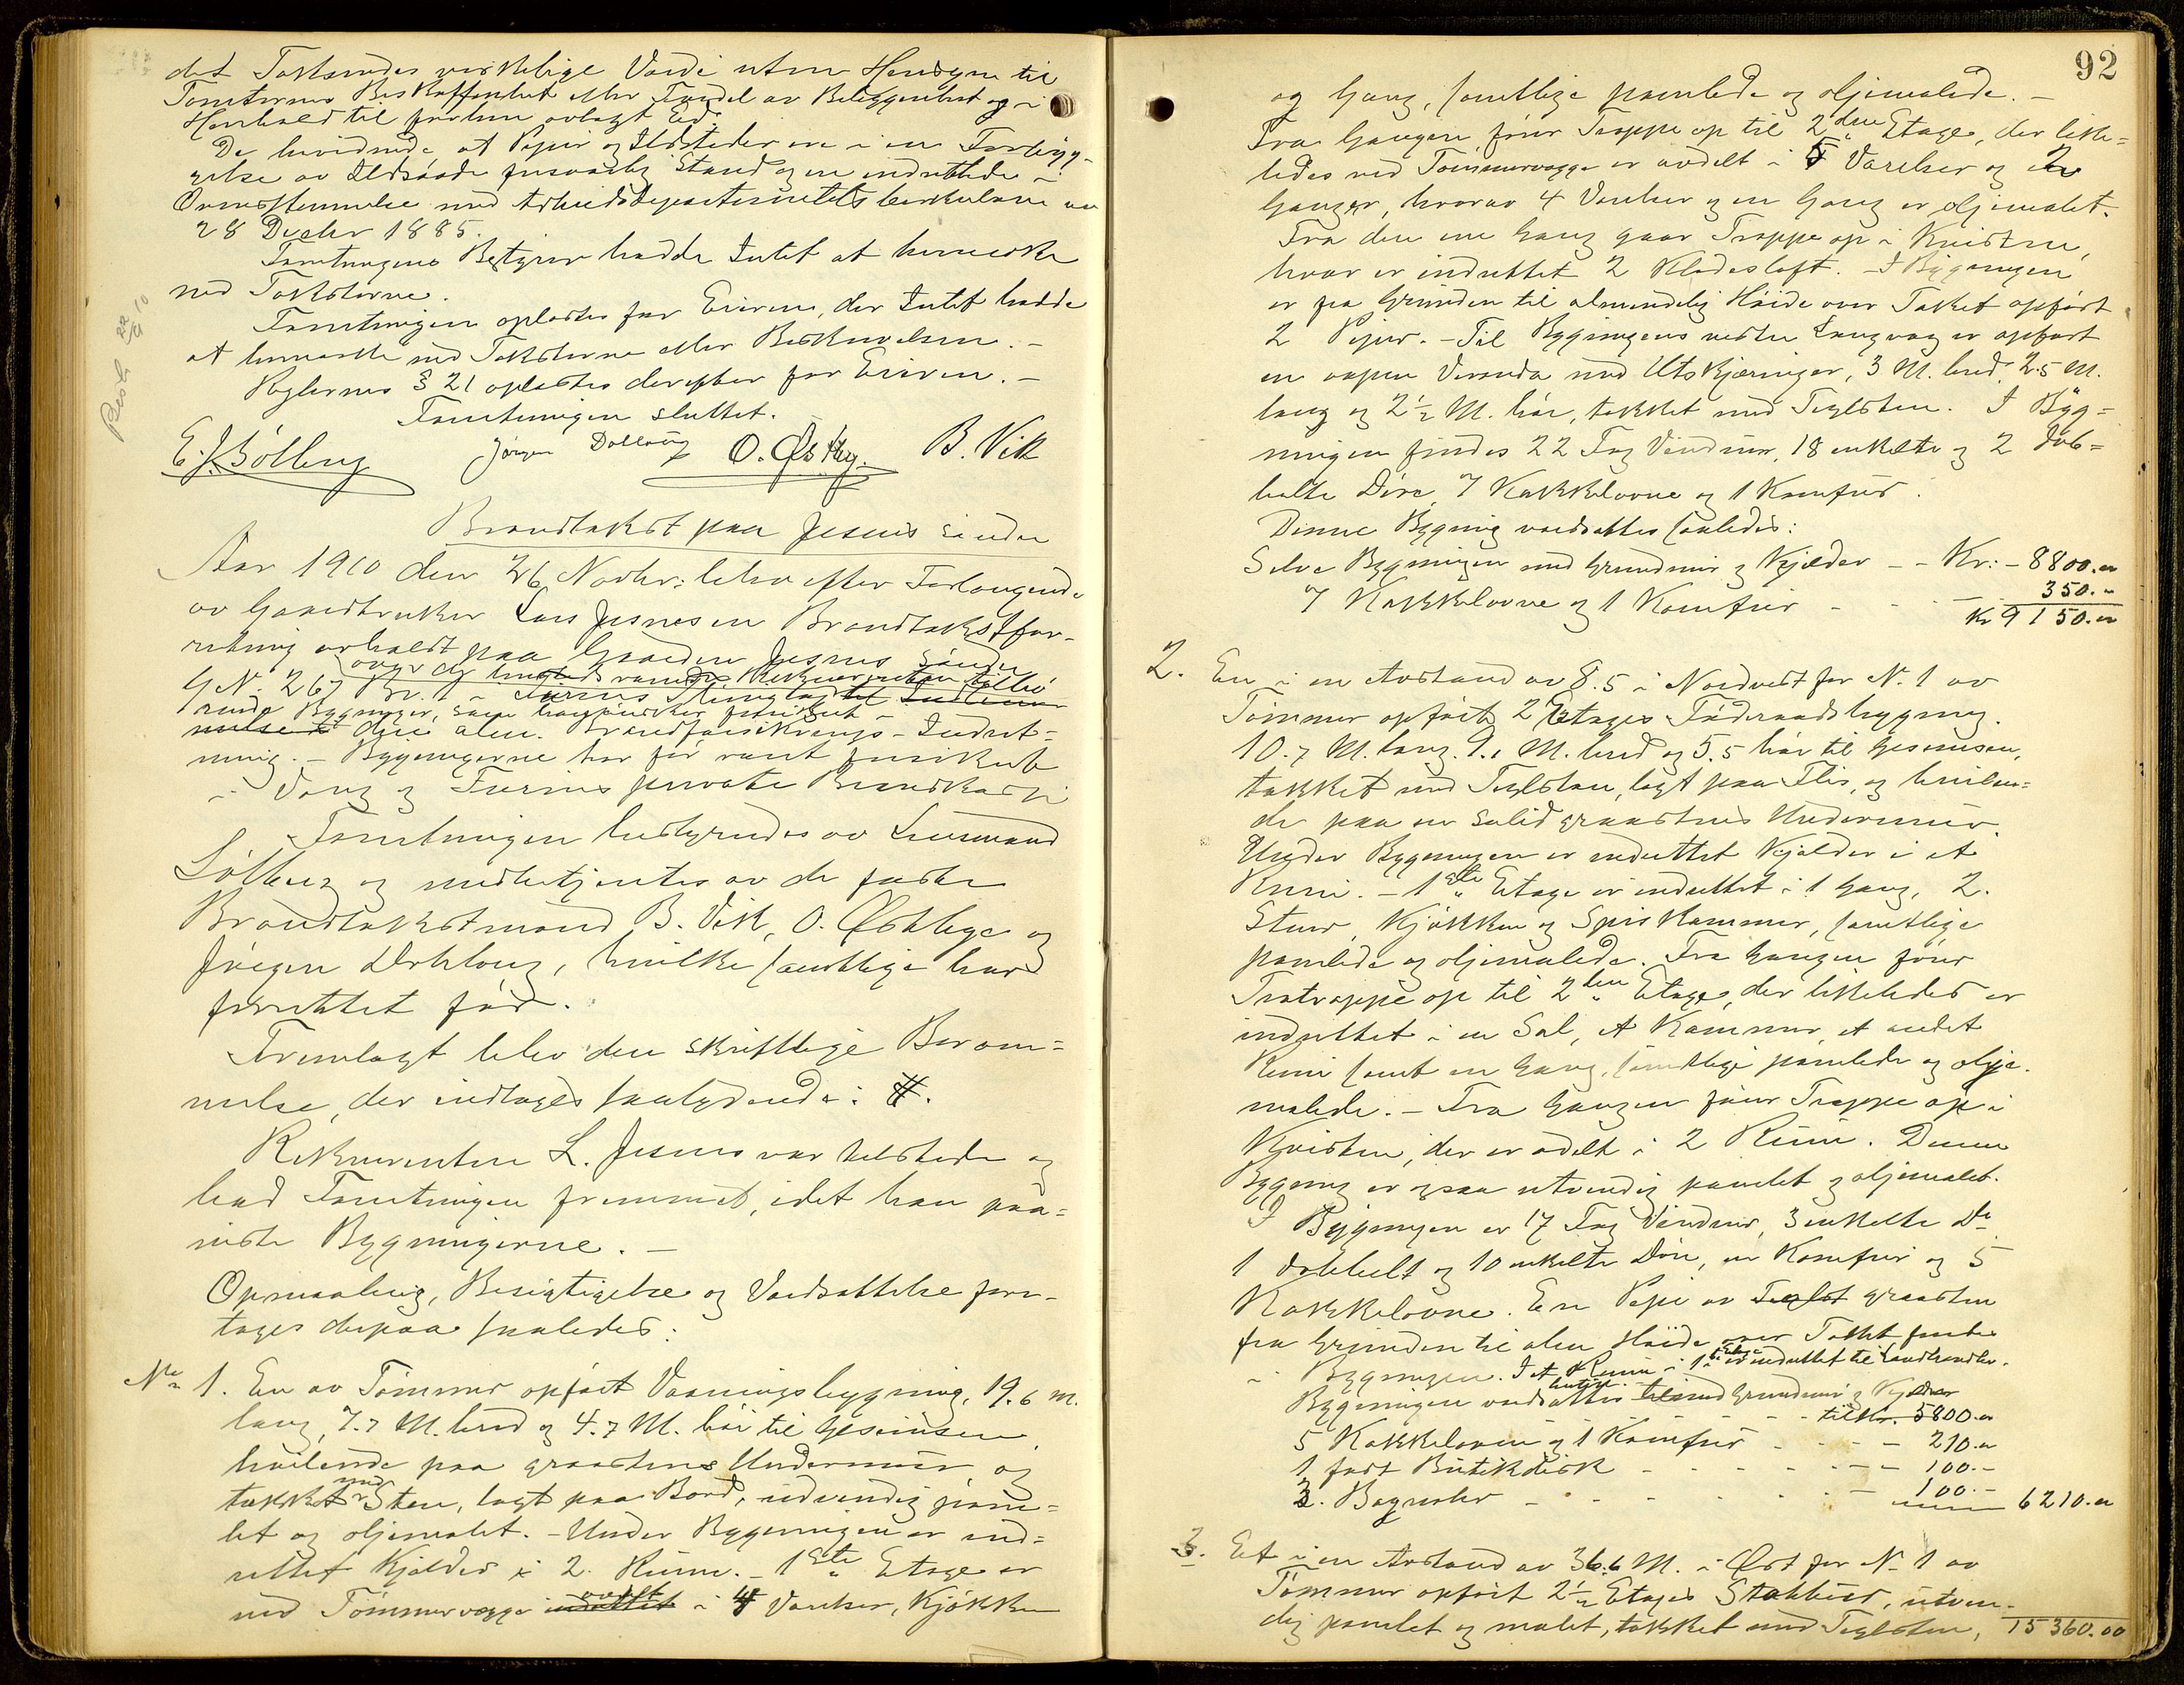 det Takseredes virkelige Værdi uten Hensyn til
Tomternes Beskaffenhet eller Fordel av Beliggenhet og i
Henhold til forhen avlagt Ed.
De bevidnede at Piper og Ildsteder ere i en Forbyg-
gelse av Ildsvaade forsvarlig Stand og ere indrettede i
Overensstemmelse med Arbeidsdepartementets Cirkulære av
28 Decbr 1885.
Forretningens Bestyrer hadde Intet at bemerke
ved Taksterne.
Forretningen oplæstes for Eieren, der Intet hadde
at bemærke ved Taksterne eller Beskrivelsen. –
Reglernes § 21 oplæstes derefter for Eieren. –
Forretningen sluttet.
E. J. Sølberg Jørgen Dobloug O. Østby. B. Vik
Brandtakst paa Jesnes søndre
Aar 1910 den 26 Novbr: blev efter Forlangende
av Gaardbruker Lars Jesnes en Brandtakstfor-
retning avholdt paa Gaarden Jesnes søndre
G. No 267 Br. 1 i Furnes Thinglag til Indlem-
over de Rekvirenten tilhø
rende Bygninger, som
melse i den alm. Brandforsikrings-Indret-
ning. – Bygningerne har før været forsikret
i Vang og Furnes private Brandkasse
Forretningen bestyredes av Lensmand
Sølberg og medbetjentes av de faste
Brandtakstmænd B. Vik, O. Østby og
Jørgen Dobloug, hvilke samtlige har
forrettet før.
Fremlagt blev den skriftlige Beram=
melse, der indtages saalydende: #.
Rekvirenten L. Jesnes var tilstede og
bad Forretningen fremmet, idet han paa=
viste Bygningerne. –
Opmaaling, Besigtigelse og Værdsættelse fore-
tages derpaa saaledes:
No 1. En av Tømmer opført Vaaningsbygning, 19.6 m.
lang, 7.7 M. bred og 4.7 M. høi til Gesimsen
hvilende paa graastens Undermur og
tækket med Sten, lagt paa Bord, udvendig pane=
let og oljemalet. – Under Bygningen er ind=
rettet Kjelder i 2. Rum. – 1ste Etage er
ved Tømmervægge indrettet avdelt i 4 Værelser, Kjøkken
Besk 22/12 10
92
og Gang, samtlige panelede og oljemalede. –
Fra Gangen fører Trappe op til 2den Etage, der like=
ledes ved Tømmervægge er avdelt i 5 Værelser og 2
Ganger, hvorav 4 Værelser og en Gang er oljemalet.
Fra den ene Gang gaar Trappe op i Kvisten,
hvor er indrettet 2 Klædesloft. – I Bygningen
er fra Grunden til almindelig Høide over Taket opført
2 Piper. – Til Bygningens vestre Langvæg er opført
en aapen Veranda med Utskjæringer, 3 M. bred, 2.5 M.
lang og 2½ M. høi, tækket med Teglsten. I Byg=
ningen findes 22 Fag Vinduer, 18 enkelte og 2 dob=
belte Døre, 7 Kakkelovne og 1 Komfur.
Denne Bygning værdsættes saaledes:
Selve Bygningen med Grundmur og Kjælder – – Kr: – 8800.00
7 Kakkelovne og 1 Komfur – – – 350. "
Kr 9150.00
2. En i en Avstand av 8.5 i Nordvest for No 1 av
Tømmer opført 2 Etages Føderaadsbygning.
10.7 M. lang. 9.1 M. bred og 5.5 høi til Gesimsen,
tækket med Teglsten, lagt paa Flis, og hvilen=
de paa en solid graastens Undermur.
Under Bygningen er indrettet Kjælder i et
Rum. – 1ste Etage er indrettet i 1 Gang, 2.
Stuer, Kjøkken og Spiskammer, samtlige
panelede og oljemalede. Fra Gangen fører
Trætrappe op til 2den Etage, der likeledes er
indrettet i en Sal, et Kammer, et andet
Rum samt en Gang, samtlige panelede og olje-
malede. – Fra Gangen fører Trappe op i
Kvisten, der er avdelt i 2 Rum. Denne
Bygning er ogsaa utvendig panelet og oljemalet.
I Bygningen er 17 Fag Vinduer, 3 enkelte Do
1 dobbelt og 10 enkelte Døre, en Komfur og 5
Kakkelovne. En Pipe av Teglst graasten
fra Grunden til alm Høide over Taket findes
i Bygningen. I et Rum i 1ste Etage er indrettet til Landhandler.
butik
Bygningen værdsættes til med Grundmur og Kjelder
til Kr. 5800.00
5 Kakkelovne og 1 Komfur – – – 210.00
1 fast Butikdisk – – – 100. –
2. Bagreoler – – – 100. – 6210.00
3. Et i en Avstand av 36.6 M. i Øst for No 1 av
Tømmer opført 2½ Etages Stabbur, utven-
dig panelet og malet, tækket med Teglsten, 15360.00